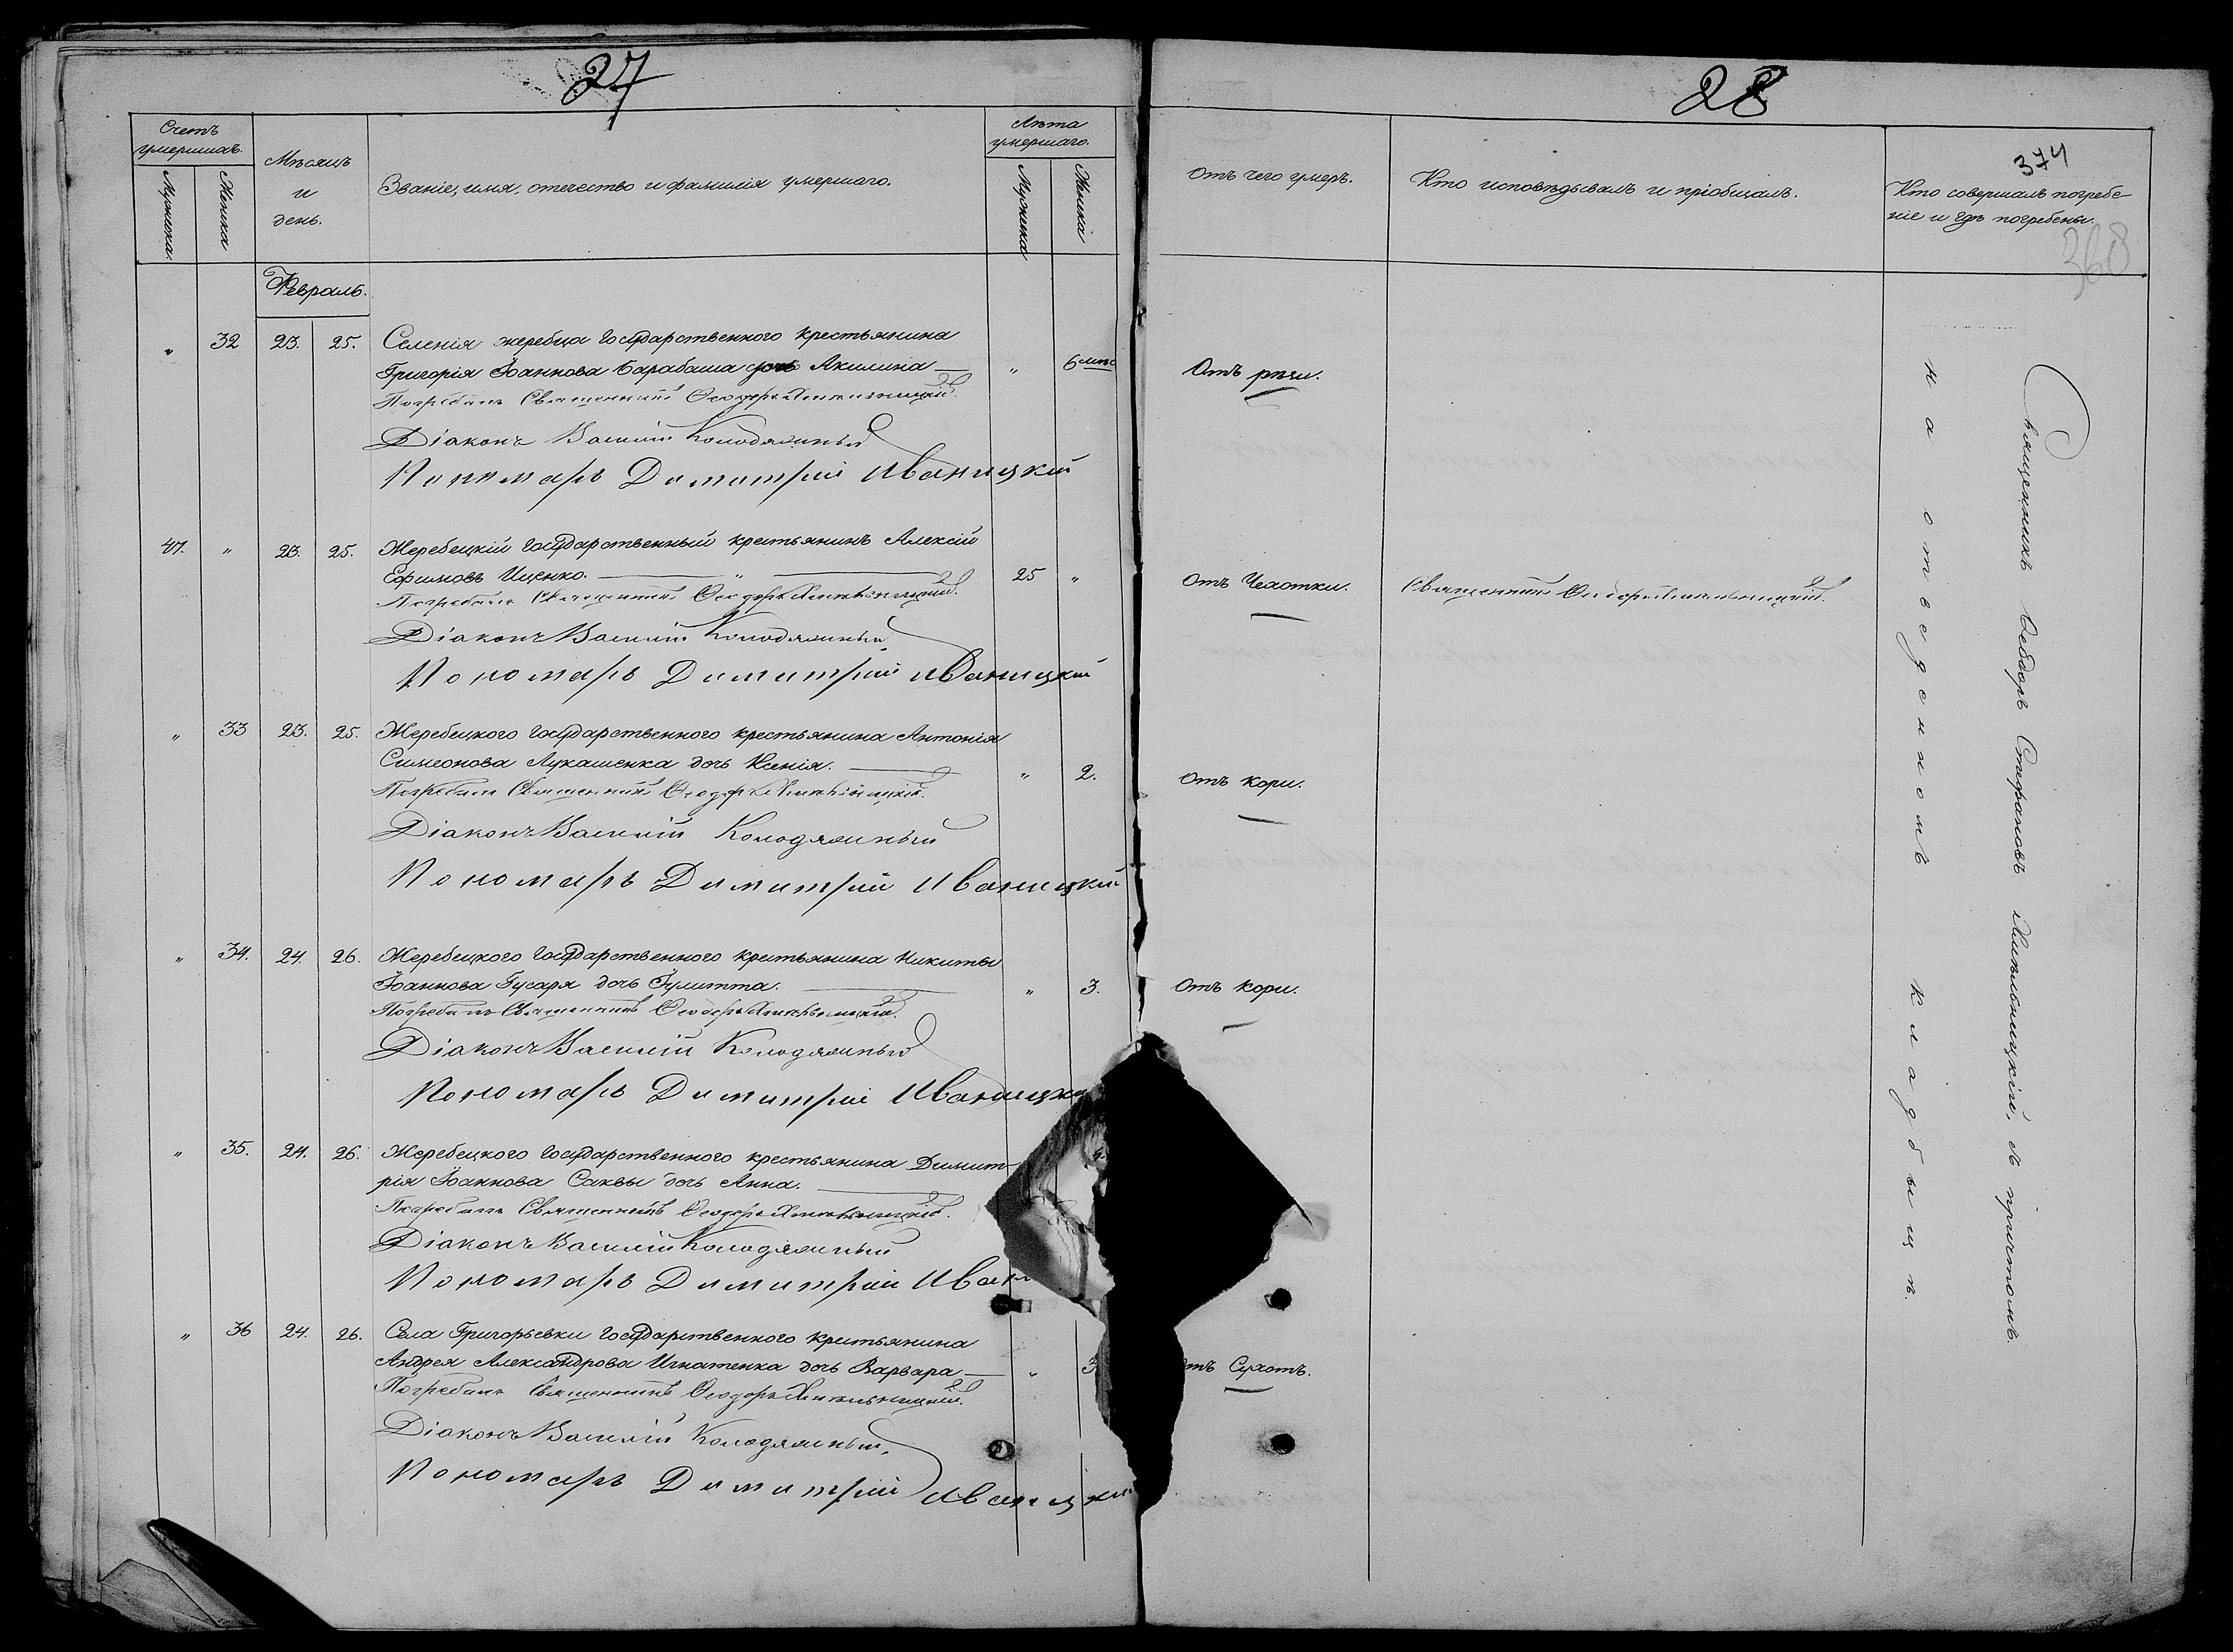 27
Счетъ умершихъ.
Мужеска.
Женска
Мѣсяцъ и день.
Званіе, имя, отечество и фамилія умершаго.
Лѣта умершаго.
Мужеска
Женска
Февраль.
" 32 23. 25. Селенія жеребца Государственного крестьянина
Григорія Іоаннова Барабаша дочь Акилина — " 6 мѣс
Погребалъ Священникъ Ѳеодоръ Хмѣльницкій.
Діаконъ Василій Колодяжный
Пономарь Димитрій Иваницкій
47. " 23. 25. Жеребецкій Государственный крестьянинъ Алексій
Ефимовъ Ищенко. — " — 25 "
Погребалъ Священникъ Ѳеодоръ Хмѣльницкій.
Діаконъ Василій Колодяжный
Пономарь Димитрій Иваницкій
" 33 23. 25. Жеребецкого Государственного крестьянина Антонія
Симеонова Лукашенка дочь Ксенія. — " 2.
Погребалъ Священникъ Ѳеодоръ Хмѣльницкій.
Діаконъ Василій Колодяжный
Пономарь Димитрій Иваницкій
" 34. 24. 26. Жеребецкого Государственного крестьянина Никиты
Іоаннова Гусаря дочь Іулитта. — " 3.
Погребалъ Священникъ Ѳеодоръ Хмѣльницкій.
Діаконъ Василій Колодяжный
Пономарь Димитрій Иваницкій
" 35. 24. 26. Жеребецкого Государственного крестьянина Димит-
рія Іоаннова Саквы дочь Анна. —
Погребалъ Священникъ Ѳеодоръ Хмѣльницкій.
Діаконъ Василій Колодяжный
Пономарь Димитрій Иван
" 36 24. 26. Села Григорьевки Государственного крестьянина
Андрея Александрова Игнатенка дочь Варвара — " 3
Погребалъ Священникъ Ѳеодоръ Хмѣльницкій.
Діаконъ Василій Колодяжный
Пономарь Димитрій Иваницкій
28
374
368
Отъ чего умеръ.
Кто исповѣдывалъ и пріобщалъ.
Кто совершалъ погребе-
ніе и гдѣ погребены.
Отъ рѣзи.
Отъ Чехотки.
Священникъ Ѳеодоръ Хмѣльницкій.
Отъ кори.
Отъ кори.
тъ Сухотъ.
Священникъ Ѳеодоръ Стефановъ Хмѣльницкій, съ причтомъ.
на отведенномъ кладбищѣ.